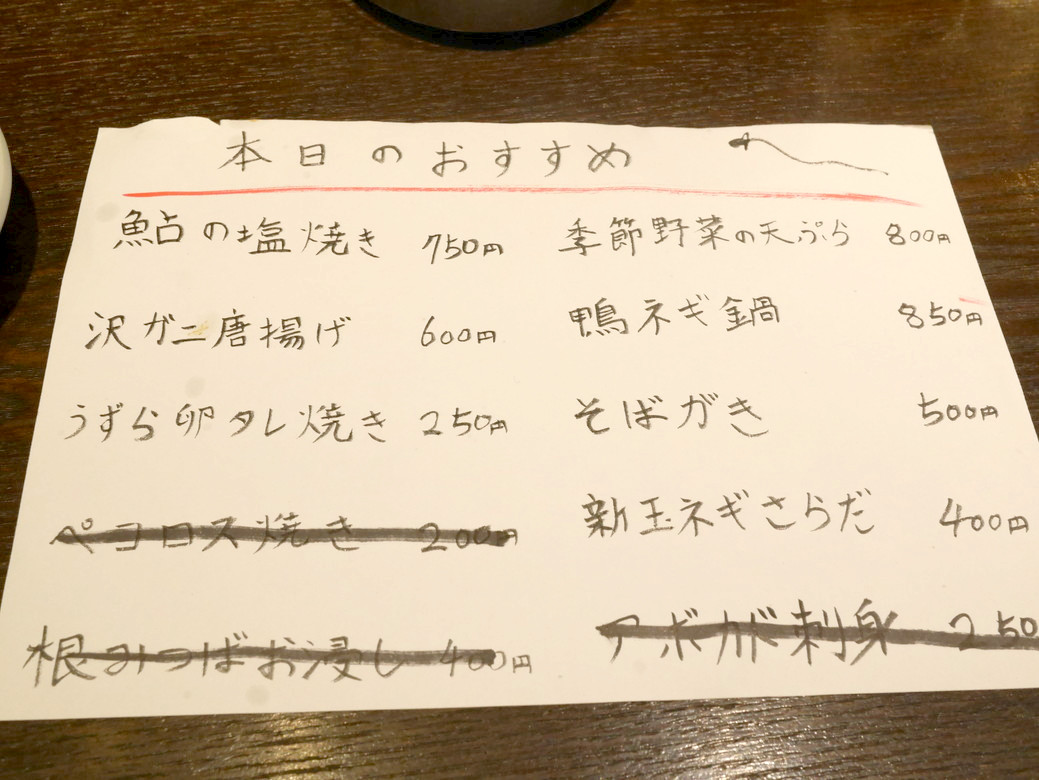 本日のおすすめ
鮎の塩焼き 750円
沢ガニ唐揚げ 600円
うずら卵タレ焼き 250円
ペコロス焼き 200円
根みつばお浸し 400円
季節野菜の天ぷら 800円
鴨ネギ鍋 850円
そばがき 500円
新玉ネギさらだ 400円
アボカド刺身 250